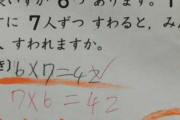 いすが 6つ あります。1
に 7人ずつ すわると、み
人 すわれますか。
き)6×7=42
7×6=42